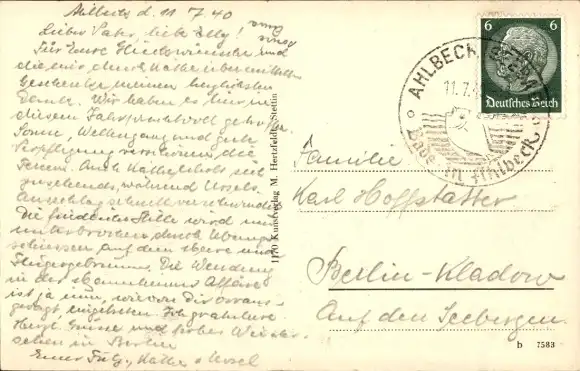 Ahlbeck d. 11.7.40
Lieber Vater, liebe Elly!
Für Eure Glückwünsche und
die mir durch Käthe übermittelten
Geschenke meinen herzlichsten
Danke. Wir haben es hier in
diesem Jahr prachtvoll getroffen
Sonne, Wellengang und gute
Verpflegung verschönen die
Ferien. Auch Käthe erholt sich
zusehends, während Ursels
Ausschlag schnell verschwindet
Die friedliche Stille wird nur
unterbrochen durch Übungs-
schiessen auf dem Meere und
Fliegergebrumm. Die Wendung
in der
ist ja nun, wie von Dir voraus-
gesagt, eingetreten.
Herzl. Grüsse und frohes Wieder-
sehen in Berlin
Euer Fritz, Käthe u. Ursel
1170 Kunstverlag M. Hertzfeldt, Stettin
6 6
Deutsches Reich
AHLBECK (SEEBAD)
11.7.4
Bade in Ahlbeck
Familie
Karl Hoffstätter
Berlin-Kladow
Auf den Seebergen
b 7583